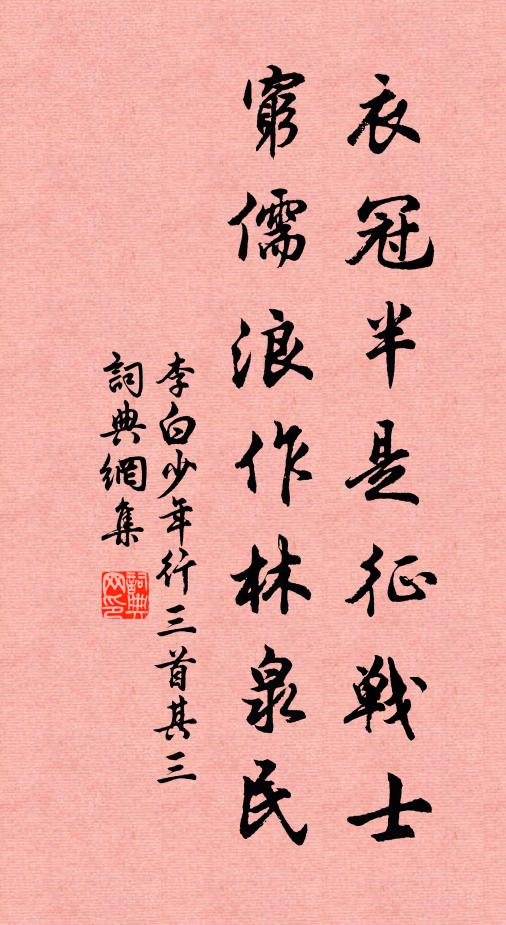 衣冠半是征战士
窮儒浪作林泉民
李白少年行三首其三
詞典網集
詞典
网印